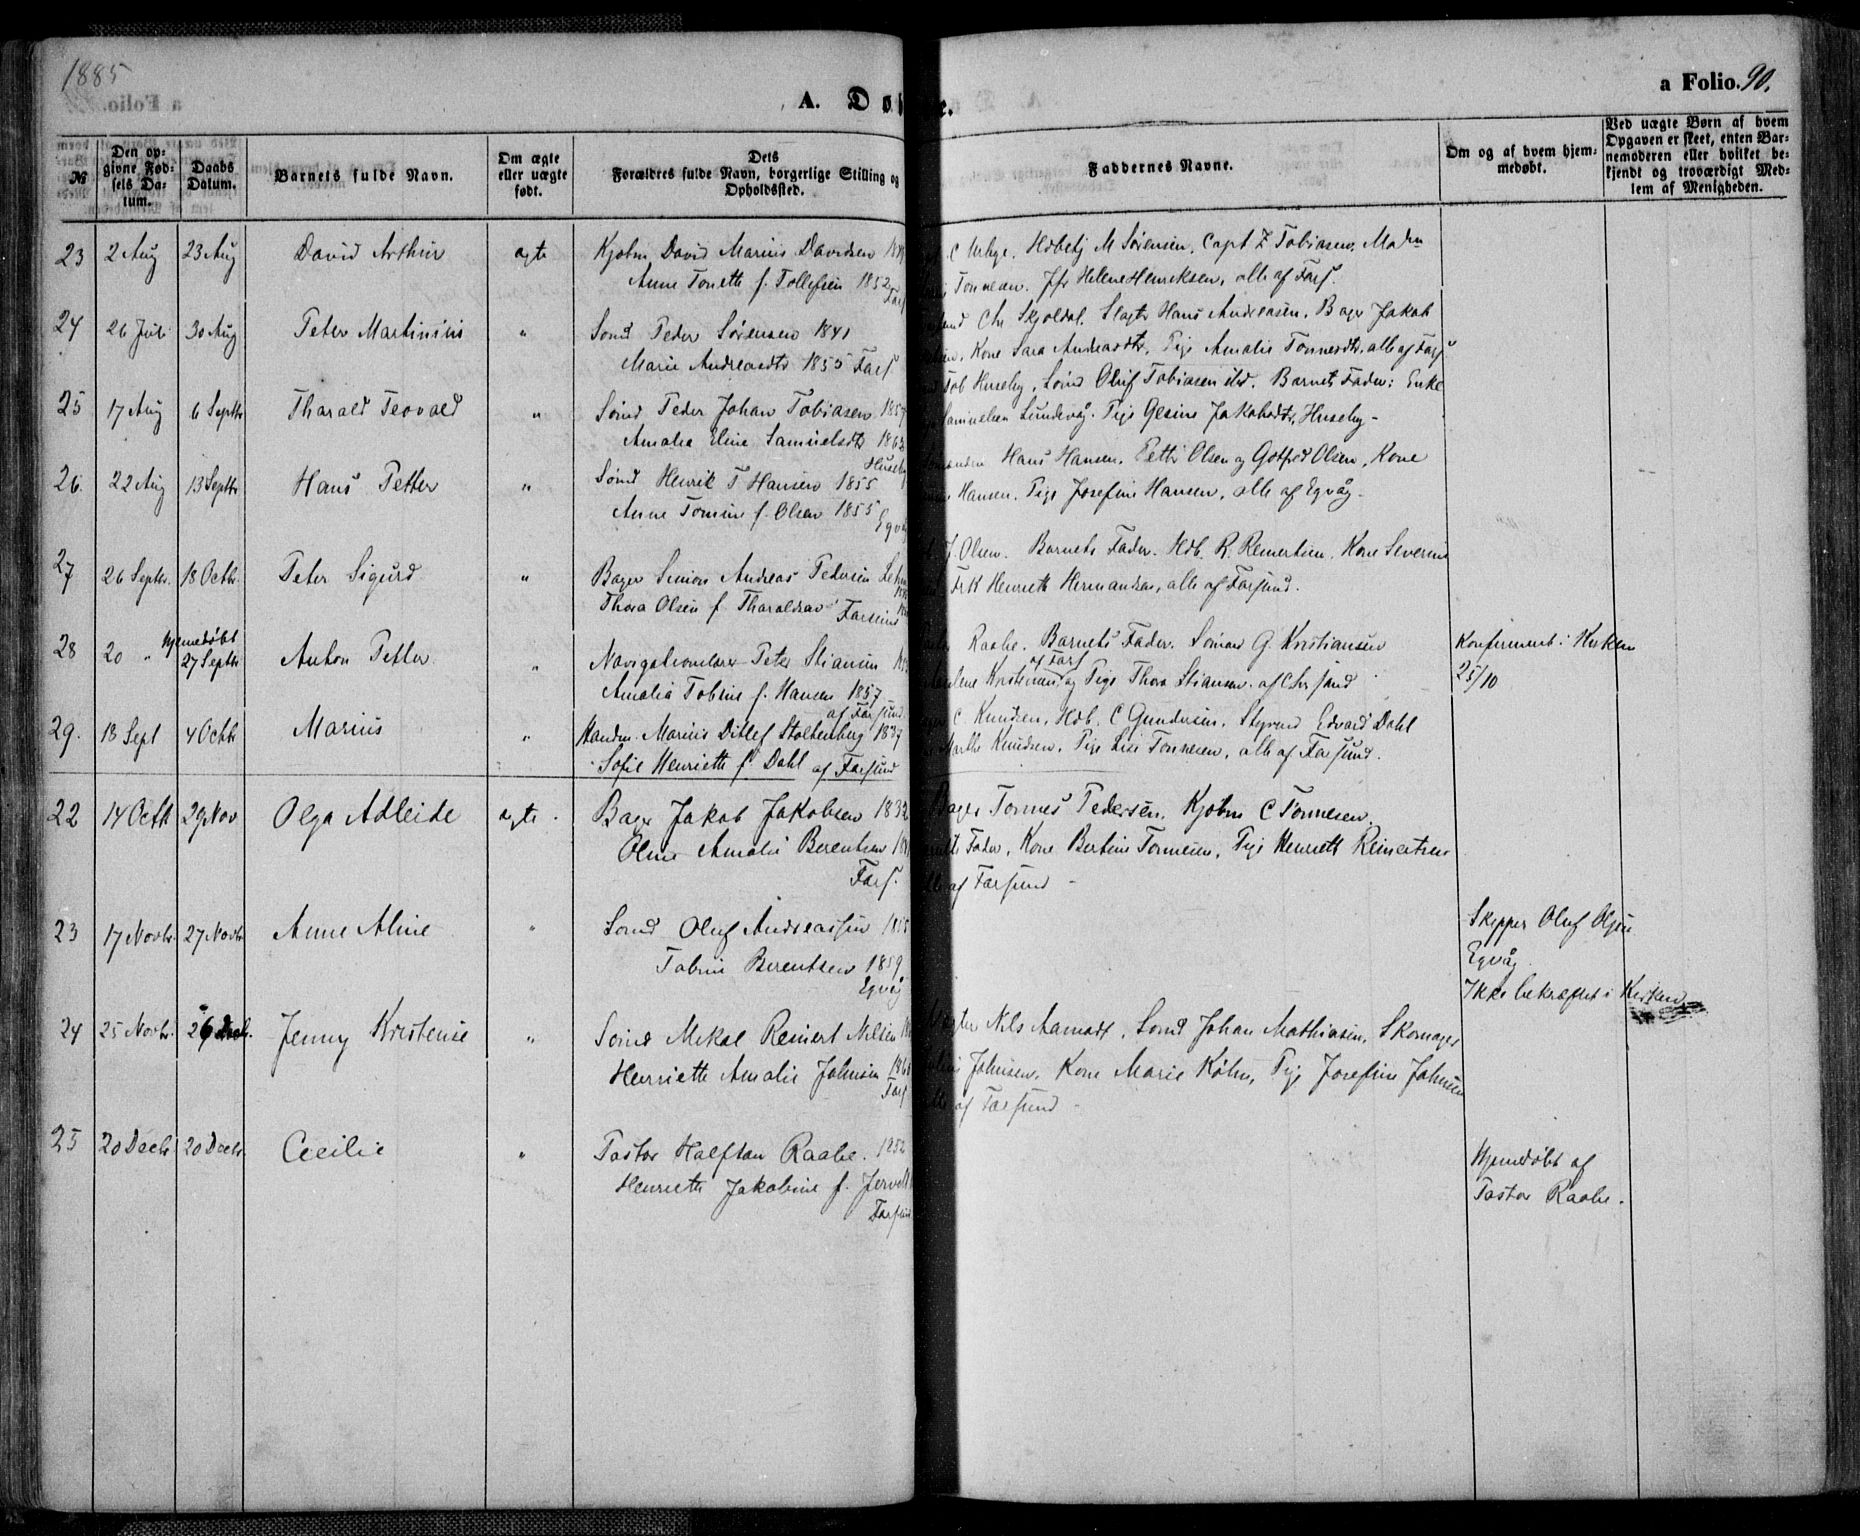 1885
a Folio. 90.
A. Døbte.
№
Den opgivne Fødsels Datum.
Daabs Datum.
Barnets fulde Navn.
Om ægte eller uægte født.
Dets Forældres fulde Navn, borgerlige Stilling og Opholdssted.
Faddernes Navne.
Om og af hvem hjemmedøbt.
Ved uægte Børn af hvem Opgaven er skeet, enten Barnemoderen eller hvilket bekjendt og troværdigt Medlem af Menigheden.
23 2 Aug 23 Aug David Arthur ægte Kjøbm David Marius Davidsen
Anne Tonette f. Tollefsen 1852 Fars
Hdbetj M Sørensen. Capt Z Tobiasen. Madm
Tonnesen. Jfr Helene Henriksen, alle af Fars.
24 26 Juli 30 Aug Peter Martinius " Sømd Peder Sørensen 1841
Marie Andreasdtr 1855 Fars
Chr Skjoldal. Slagter Hans Andreasen. Bager Jakob
Kone Sara Andreasdtr, Pige Amalie Tonnesdtr, alle af Fars
25 17 Aug 6 Septbr Tharald Teovald " Sømd Peder Johan Tobiasen 1857
Amalie Eline Samuelsdtr 1863
Huseby
Tob Huseby, Sømd Oluf Tobiasen ibd. Barnets Fader: Enke
Samuelsen Lundevåg. Pige Gesine Jakobsdtr, Huseby -
26. 22 Aug 13 Septbr Hans Petter " Sømd Henrik T Hansen 1855
Anne Tomine f. Olsen 1855
Egvåg
Hans Hansen. Petter Olsen og Gotfred Olsen, Kone
Hansen. Pige Josefine Hansen, alle af Egvåg -
27 26 Septbr. 18 Octbr. Peter Sigurd " Bager Simon Andreas Pedersen
Thora Olsen f Tharaldsen Farsund
Olsen. Barnets Fader. Hdb. R. Reinertsen. Kone Severine
Frk Henriette Hermansen, alle af Farsund.
28 20 " Hjemedøbt 27 Septbr Anton Petter " Navigationslærer Peter Stiansen
Amalia Tobine f. Hansen 1857
af Farsund
Raabe. Barnets Fader. Sømand G. Kristiansen
af Fars
og Pige Thora Stiansen af Chrsand
Konfirmeret i Kirken
25/10
29. 18 Sept 4 Octbr Marius " Handm. Marius Ditlef Stoltenberg 1837
Sofie Henriette f. Dahl af Farsund
C. Knudsen, Hdb. C Gundersen. Styrmd Edvard Dahl
Marthe Knudsen, Pige Lise Tonnesen, alle af Farsund.
22 14 Octb 29 Nov Olga Adleide ægte. Bager Jakob Jakobsen 1832
Oline Amalie Berentsen
Fars.
Bager Tønnes Pedersen. Kjøbm C Tønnesen.
Fader, Kone Bertine Tonnesen, Pige Henriette Reinertsen
af Farsund -
23 17 Novbr. 27 Novbr. Anne Aline " Sømd Oluf Andreassen 1855
Tobine Berentsen 1859
Egvåg
Skipper Oluf Olsen
Egvåg.
Ikke bekræftet i Kirken
24 25 Novbr. 26 Decb. Jenny Kristense " Sømd Mikal Reinert Nilsen
Henriette Amalie Johnsen
Fars
Nils Aamodt, Sømd Johan Mathiasen, Skomager
Johnsen, Kone Marie Køhn, Pige Josefine Johnsen
af Farsund -
25 20 Decbr 20 Decbr Cecilie " Pastor Halfdan Raabe. 1852
Henriette Jakobine f. Jervell
Farsund
Hjemedøbt af
Pastor Raabe.